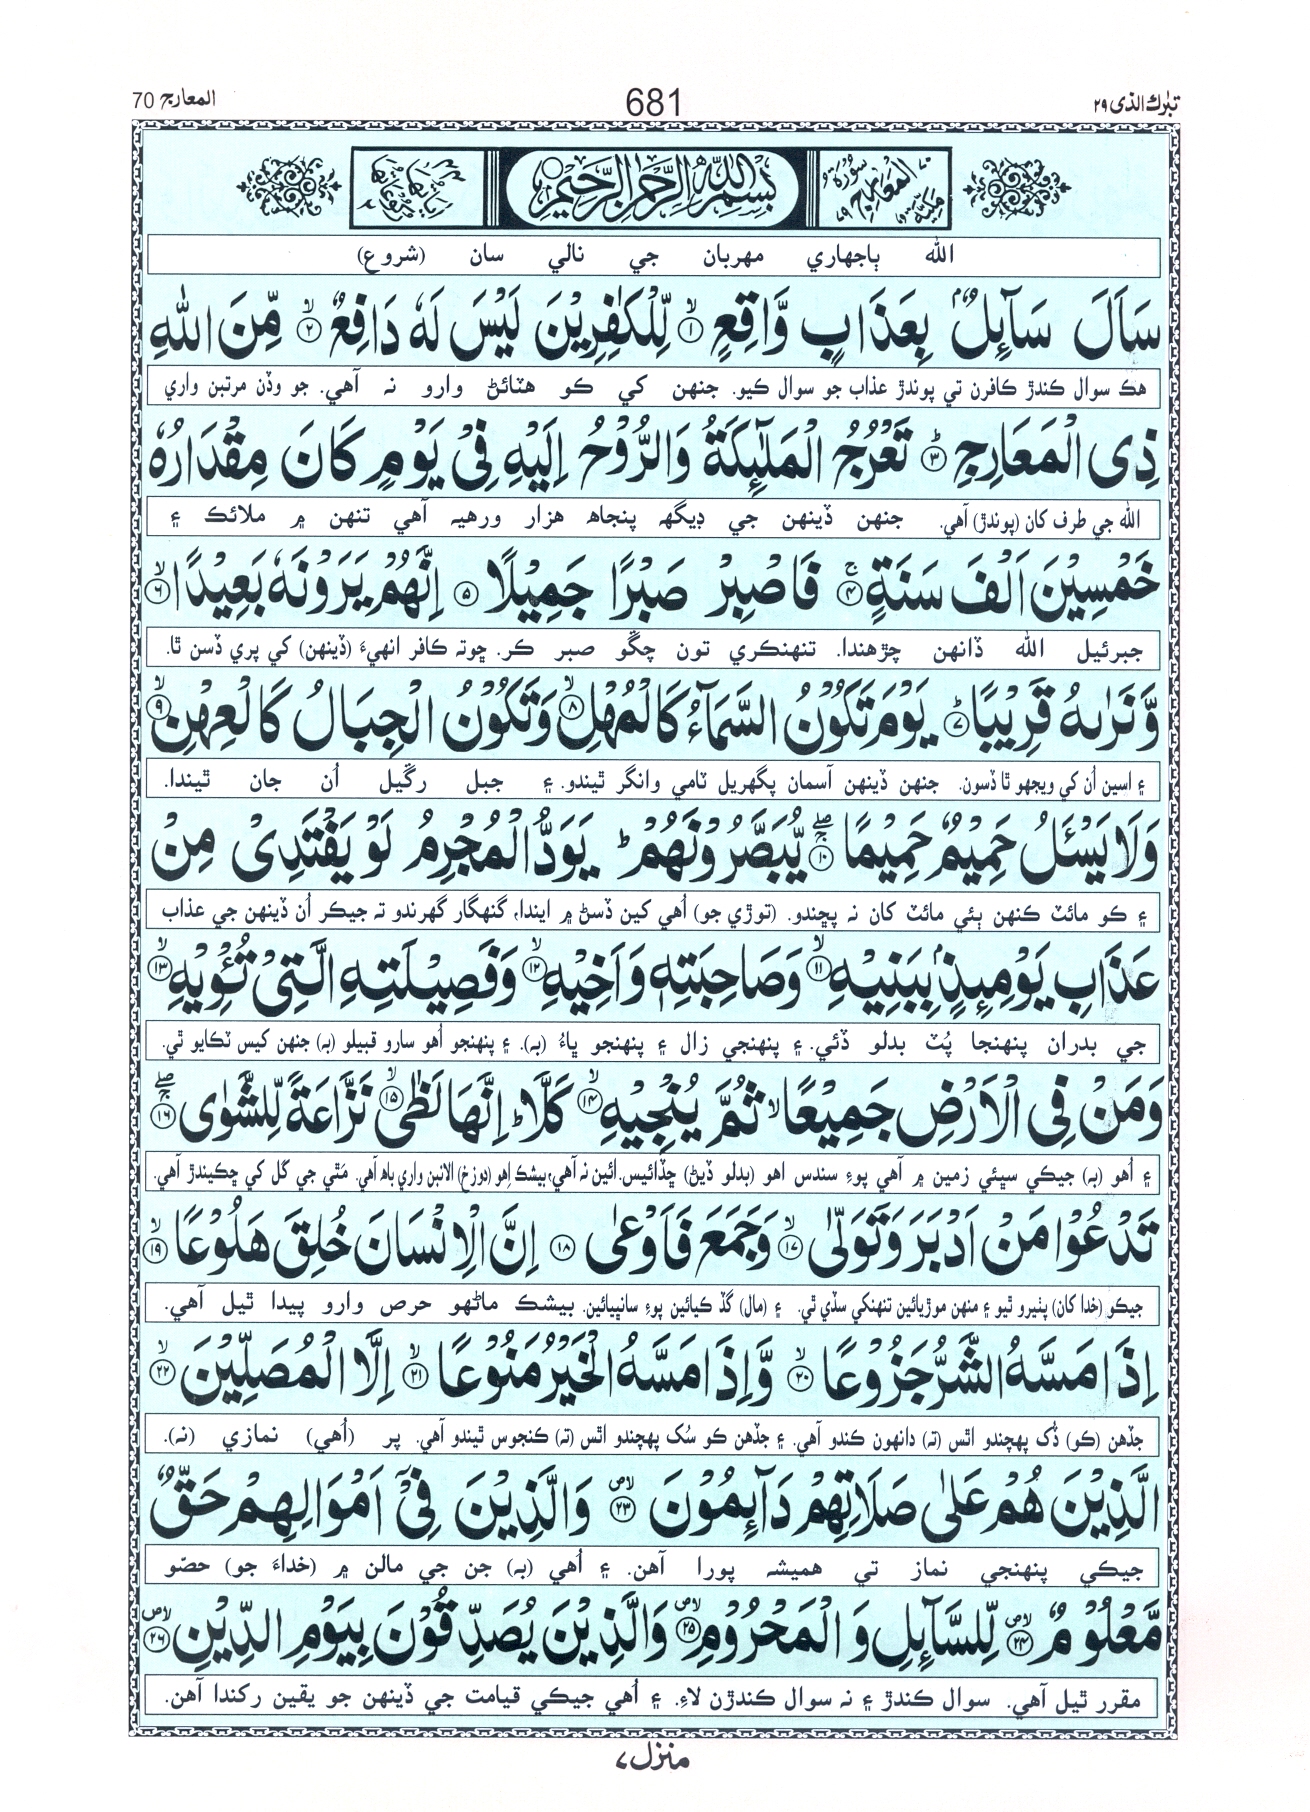 تبٰرك الذی ۲۹
681
المعارج 70
سُورَةُ الْمَعَارِجِ مَكِّيَّةٌ
بِسْمِ اللّٰهِ الرَّحْمٰنِ الرَّحِيْمِ
الله ٻاجهاري مهربان جي نالي سان (شروع)
سَاَلَ سَآئِلٌۢ بِعَذَابٍ وَّاقِعٍۙ۝۱ لِّلْكٰفِرِيْنَ لَيْسَ لَهٗ دَافِعٌۙ۝۲ مِّنَ اللّٰهِ
هڪ سوال ڪندڙ ڪافرن تي پوندڙ عذاب جو سوال ڪيو. جنهن کي ڪو هٽائڻ وارو نہ آهي. جو وڏن مرتبن واري
ذِی الْمَعَارِجِؕ۝۳ تَعْرُجُ الْمَلٰٓئِكَةُ وَالرُّوْحُ اِلَيْهِ فِیْ يَوْمٍ كَانَ مِقْدَارُهٗ
الله جي طرف کان (پوندڙ) آهي. جنهن ڏينهن جي ڊيگهہ پنجاهہ هزار ورهيہ آهي تنهن ۾ ملائڪ ۽
خَمْسِيْنَ اَلْفَ سَنَةٍۚ۝۴ فَاصْبِرْ صَبْرًا جَمِيْلًا۝۵ اِنَّهُمْ يَرَوْنَهٗ بَعِيْدًاۙ۝۶
جبرئيل الله ڏانهن چڙهندا. تنهنڪري تون چڱو صبر ڪر. ڇوتہ ڪافر انهيءَ (ڏينهن) کي پري ڏسن ٿا.
وَّنَرٰىهُ قَرِيْبًاؕ۝۷ يَوْمَ تَكُوْنُ السَّمَآءُ كَالْمُهْلِۙ۝۸ وَتَكُوْنُ الْجِبَالُ كَالْعِهْنِۙ۝۹
۽ اسين اُن کي ويجهو ٿا ڏسون. جنهن ڏينهن آسمان پگهريل ٽامي وانگر ٿيندو. ۽ جبل رڱيل اُن جان ٿيندا.
وَلَا يَسْـَٔلُ حَمِيْمٌ حَمِيْمًاۚۖ۝۱۰ يُّبَصَّرُوْنَهُمْؕ يَوَدُّ الْمُجْرِمُ لَوْ يَفْتَدِیْ مِنْ
۽ ڪو مائٽ ڪنهن ٻئي مائٽ کان نہ پڇندو. (توڙي جو) اُهي کين ڏسڻ ۾ ايندا، گنهگار گهرندو تہ جيڪر اُن ڏينهن جي عذاب
عَذَابِ يَوْمِئِذٍۭ بِبَنِيْهِۙ۝۱۱ وَصَاحِبَتِهٖ وَاَخِيْهِۙ۝۱۲ وَفَصِيْلَتِهِ الَّتِیْ تُـْٔوِيْهِۙ۝۱۳
جي بدران پنهنجا پُٽ بدلو ڏئي. ۽ پنهنجي زال ۽ پنهنجو ڀاءُ (بہ). ۽ پنهنجو اُهو سارو قبيلو (بہ) جنهن کيس ٽڪايو ٿي.
وَمَنْ فِی الْاَرْضِ جَمِيْعًاۙ ثُمَّ يُنْجِيْهِۙ۝۱۴ كَلَّاؕ اِنَّهَا لَظٰیۙ۝۱۵ نَزَّاعَةً لِّلشَّوٰیۚۖ۝۱۶
۽ اُهو (بہ) جيڪي سڀئي زمين ۾ آهي پوءِ سندس اهو (بدلو ڏيڻ) ڇڏائيس. ائين نہ آهي، بيشڪ اِهو (دوزخ) الانبن واري باهہ آهي. مَٿي جي گل کي ڇڪيندڙ آهي.
تَدْعُوْا مَنْ اَدْبَرَ وَتَوَلّٰیۙ۝۱۷ وَجَمَعَ فَاَوْعٰی۝۱۸ اِنَّ الْاِنْسَانَ خُلِقَ هَلُوْعًاۙ۝۱۹
جيڪو (خدا کان) پٺيرو ٿيو ۽ منهن موڙيائين تنهنکي سڏي ٿي. ۽ (مال) گڏ ڪيائين پوءِ سانڀيائين. بيشڪ ماڻهو حرص وارو پيدا ٿيل آهي.
اِذَا مَسَّهُ الشَّرُّ جَزُوْعًاۙ۝۲۰ وَّاِذَا مَسَّهُ الْخَيْرُ مَنُوْعًاۙ۝۲۱ اِلَّا الْمُصَلِّيْنَۙ۝۲۲
جڏهن (ڪو) ڏُک پهچندو اٿس (تہ) دانهون ڪندو آهي. ۽ جڏهن ڪو سُک پهچندو اٿس (تہ) ڪنجوس ٿيندو آهي. پر (اُهي) نمازي (نہ).
الَّذِيْنَ هُمْ عَلٰی صَلَاتِهِمْ دَآئِمُوْنَ۝۲۳ وَالَّذِيْنَ فِیْۤ اَمْوَالِهِمْ حَقٌّ
جيڪي پنهنجي نماز تي هميشہ پورا آهن. ۽ اُهي (بہ) جن جي مالن ۾ (خداءَ جو) حصّو
مَّعْلُوْمٌ۝۲۴ لِّلسَّآئِلِ وَالْمَحْرُوْمِ۝۲۵ وَالَّذِيْنَ يُصَدِّقُوْنَ بِيَوْمِ الدِّيْنِ۝۲۶
مقرر ٿيل آهي. سوال ڪندڙ ۽ نہ سوال ڪندڙن لاءِ. ۽ اُهي جيڪي قيامت جي ڏينهن جو يقين رکندا آهن.
منزل ۷